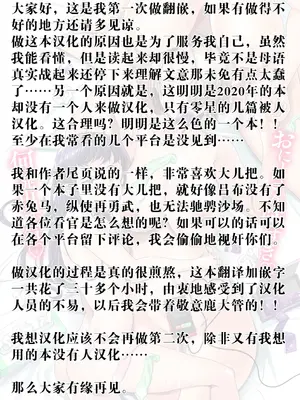 大家好，这是我第一次做翻嵌，如果有做得不
好的地方还请多见谅。
做这本汉化的原因也是为了服务我自己，虽然
我能看懂，但是读起来却很慢，毕竟不是母语
真实战起来还停下来理解文意那未免有点太蠢
了……另一个原因就是，这明明是2020年的本
却没有一个人来做汉化，只有零星的几篇被人
汉化。这合理吗？明明是这么色的一个本！！
至少在我常看的几个平台是没见到……
我和作者尾页说的一样，非常喜欢大儿把。如
果一个本子里没有大儿把，就好像吕布没有了
赤兔马，纵使再勇武，也无法驰骋沙场。不知
道各位看官是怎么想的呢？如果可以的话可以
在各个平台留下评论，我会偷偷地视奸你们。
做汉化的过程是真的很煎熬，这本翻译加嵌字
一共花了三十多个小时，由衷地感受到了汉化
人员的不易，以后我会带着敬意鹿大管的！
我想汉化应该不会再做第二次，除非又有我想
用的本没有人汉化……
那么大家有缘再见。